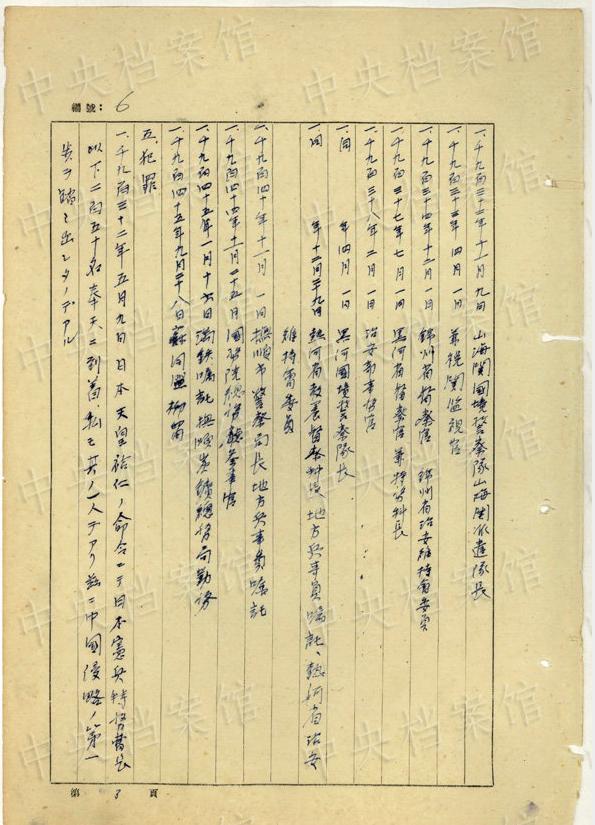 編號：6
一、千九百三十三年十一月九日 山海関国境警察隊山海関派遣隊長
一、千九百三十三年 四月 一日 兼税関監視官
一、千九百三十四年十二月一日 錦州省督察官 錦州省治安維持会委員
一、千九百三十七年七月一日 黒河省督察官兼特務科長
一、千九百三十八年二月一日 治安部事務官
一、同 年四月 一日 黒河国境警察隊長
一、同 年十二月二十九日 熱河省 督察 地方兵事員嘱託、熱河省治安
維持会委員
一、千九百四十年十一月 一日 撫順市警察局長地方兵事員嘱託
一、千九百四十四年十一月二十五日 国務院総務 参事官
一、千九百四十五年一月十六日 満鉄嘱託撫順炭鉱総務局勤務
一、千九百四十五年九月二十八日 蘇同盟抑留
五、犯罪
一、千九百三十二年五月九日日本天皇裕仁ノ命令ニテ日本憲兵特務曹長
以下二百五十名奉天ニ到着、私モ其ノ一人デアリ茲ニ中国侵略ノ第一
歩ヲ踏ミ出シタノデアル
第 3 頁
中央档案馆